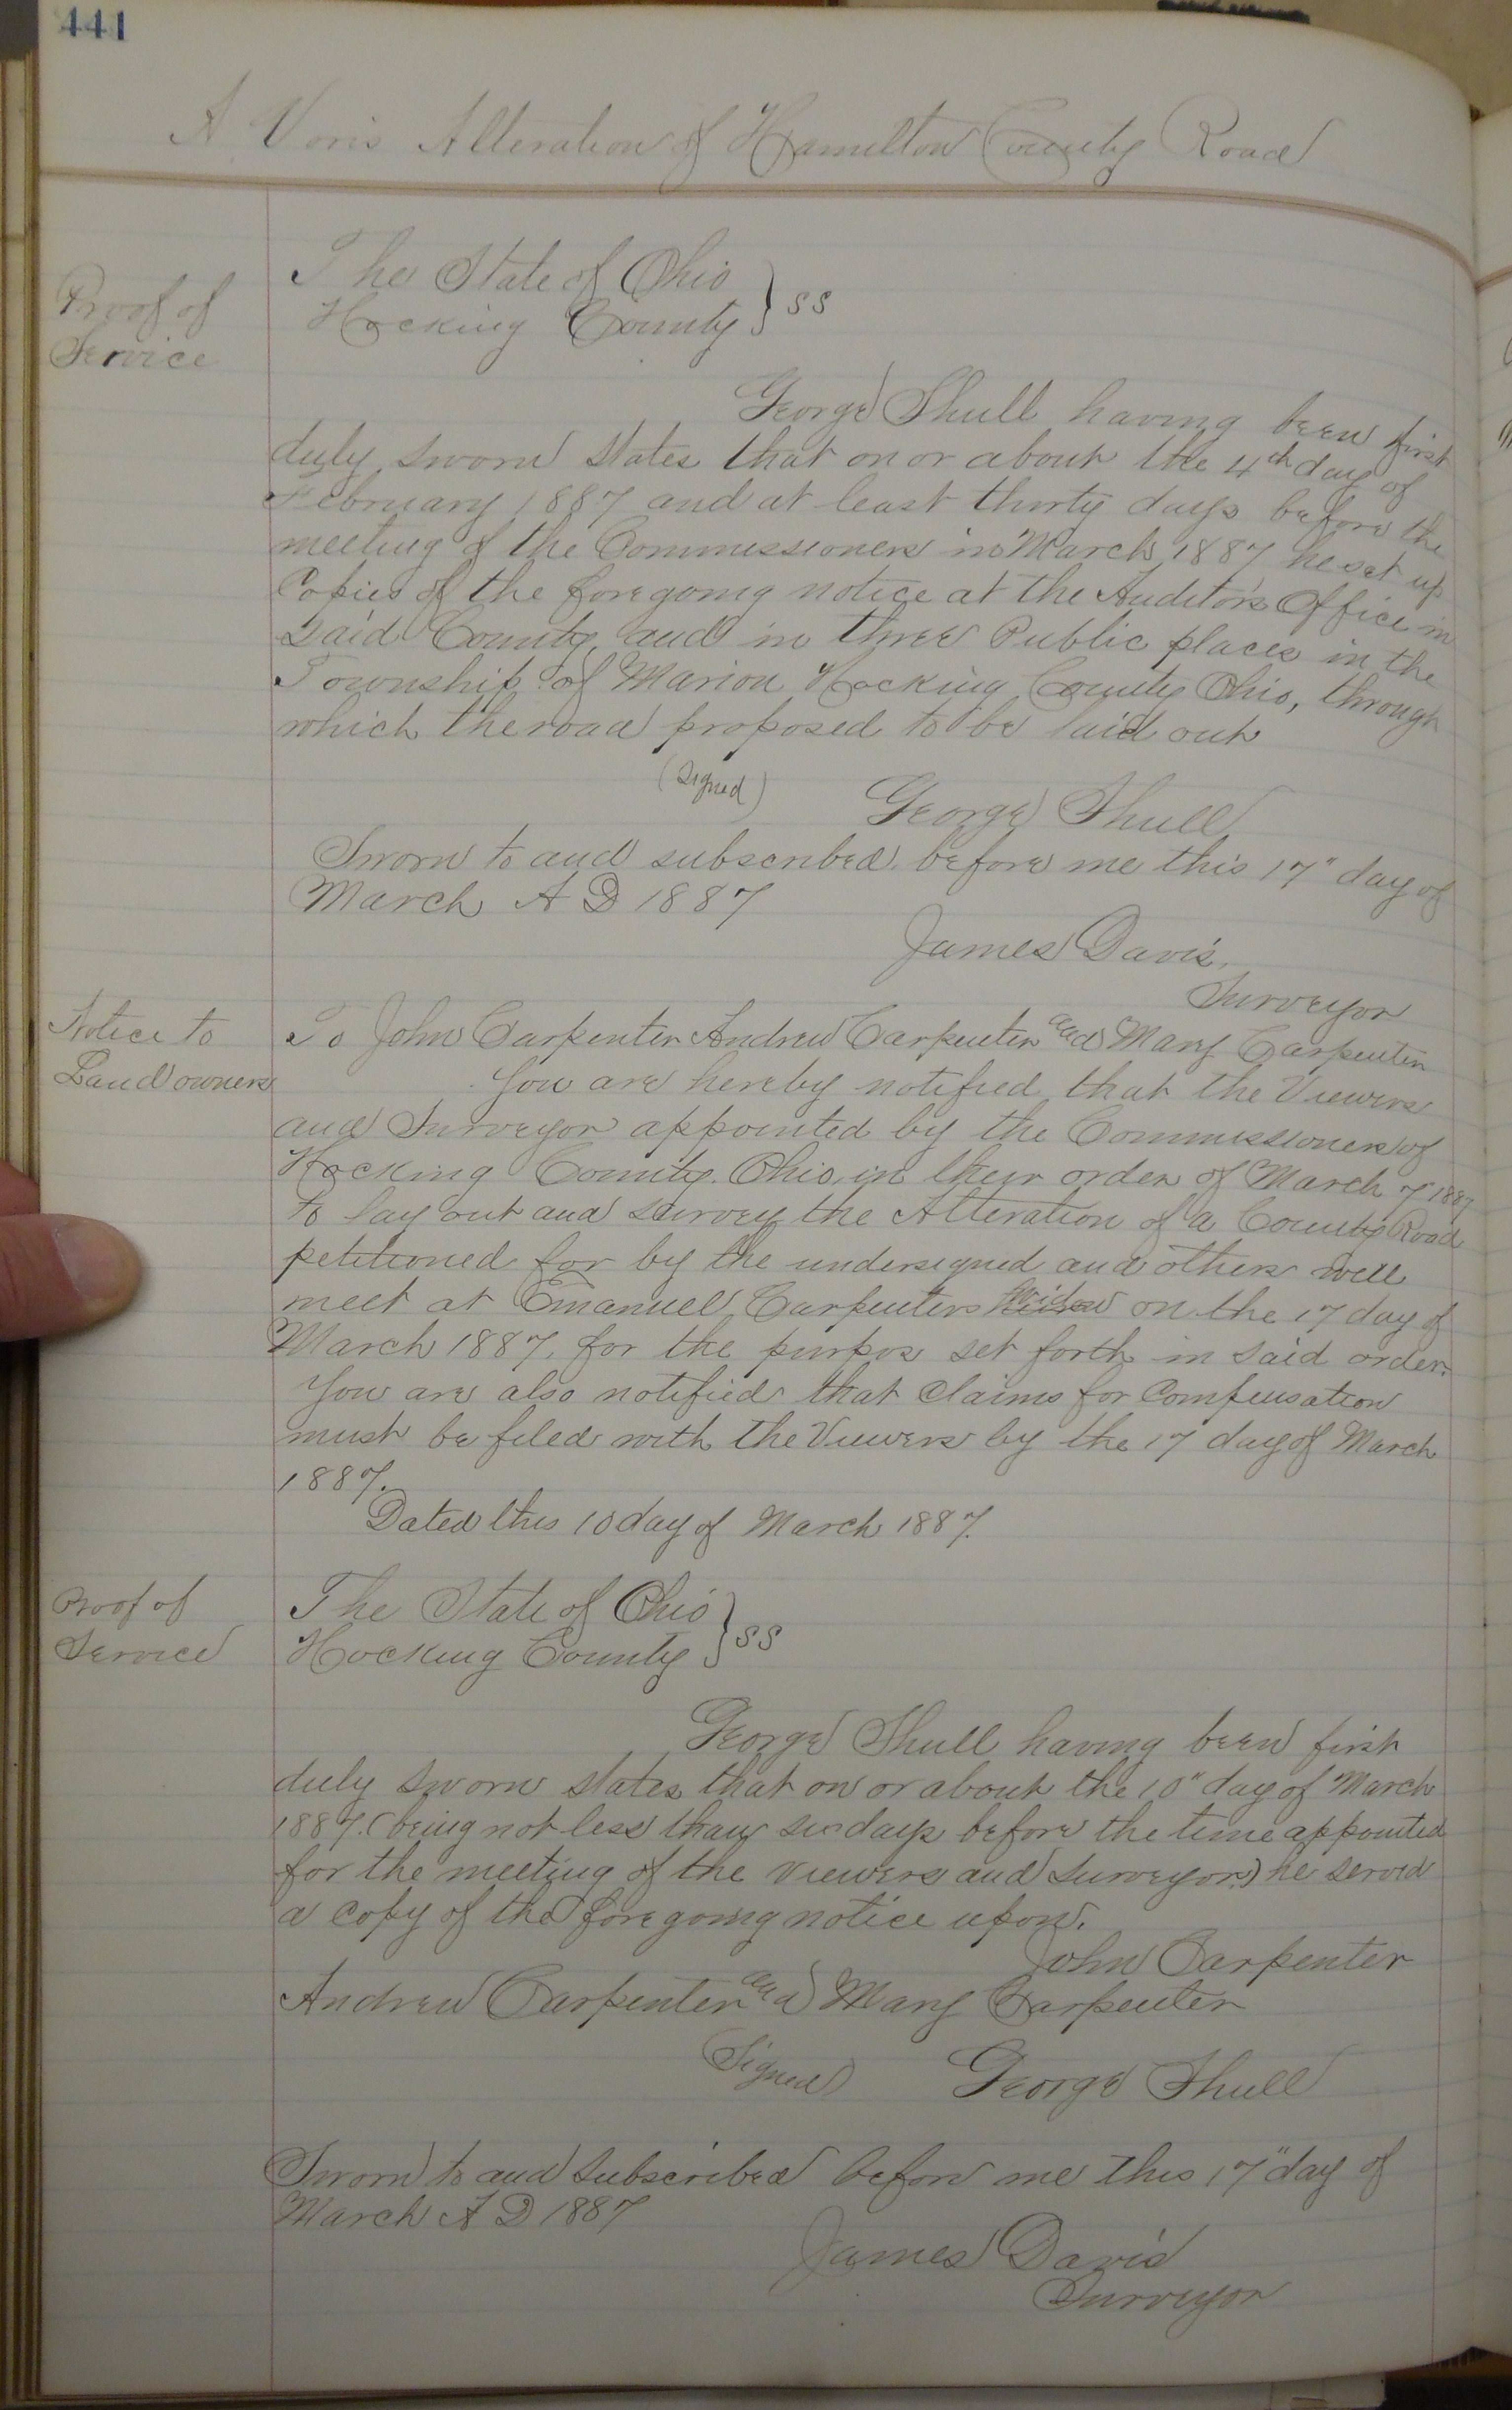 441
A Voris Alteration of Hamilton County Road
Proof of
Service
The State of Ohio
Hocking County } SS
George Shull having been first
duly sworn states that on or about the 4th day of
February 1887 and at least thirty days before the
meeting of the Commissioners in March 1887 he set up
Copies of the foregoing notice at the Auditors Office in
Said County, and in three Public places in the
Township of Marion Hocking County Ohio, through
which the road proposed to be laid out
(Signed) George Shull
Sworn to and subscribed before me this 17" day of
March A D 1887
James Davis,
Surveyor
Notice to
Land owners
To John Carpenter Andrew Carpenter and Mary Carpenter
You are hereby notified that the Viewers
and Surveyor appointed by the Commissioners of
Hocking County Ohio, in their order of March 7 1887
to lay out and survey the Alteration of a County Road
petitioned for by the undersigned and others will
meet at Emanuel Carpenters on the 17 day of
March 1887, for the purpos set forth in said order.
You are also notified that Claims for Compensation
must be filed with the Viewers by the 17 day of March
1887.
Dated this 10 day of March 1887.
Proof of
Service
The State of Ohio
Hocking County } SS
George Shull having been first
duly sworn states that on or about the 10" day of March
1887. (being not less than six days before the time appointed
for the meeting of the viewers and Surveyor) he served
a copy of the foregoing notice upon.
John Carpenter
Andrew Carpenter and Mary Carpenter
(Signed) George Shull
Sworn to and Subscribed before me this 17" day of
March A D 1887
James Davis
Surveyor